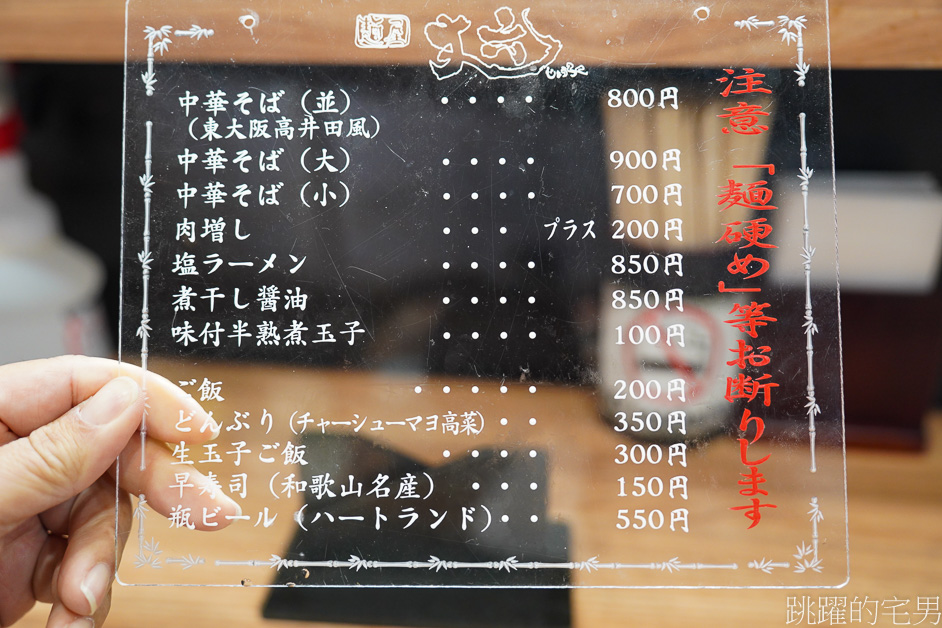 麺屋
じょうろく
中華そば（並）・・・・800円
（東大阪高井田風）
中華そば（大）・・・・900円
中華そば（小）・・・・700円
肉増し・・・プラス 200円
塩ラーメン・・・・850円
煮干し醤油・・・・850円
味付半熟煮玉子・・・・100円
ご飯・・・・・200円
どんぶり（チャーシューマヨ高菜）・・350円
生玉子ご飯・・・・300円
早寿司（和歌山名産）・・・150円
瓶ビール（ハートランド）・・550円
注意「麺硬め」等お断りします
跳躍的宅男